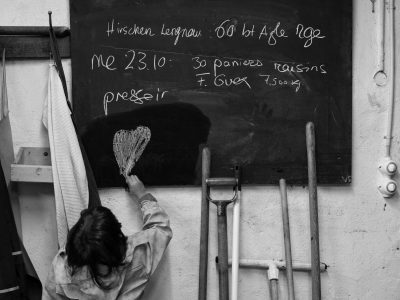 Hirschen Lengnau 60 bt
Me 23.10: 30 paniers raisins
7. 7500 kg
pressoir